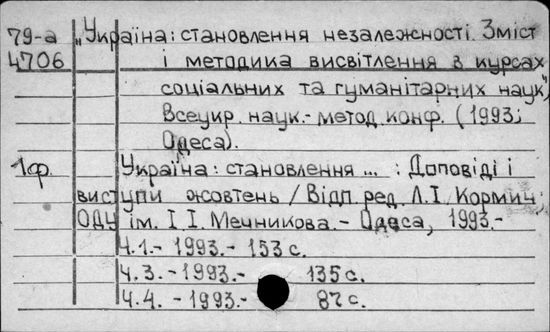 79-а „Україна: становлення незалежності. Зміст
4706 і методика висвітлення в курсах
соціальних та гуманітарних наук",
Всеукр. наук.-метод. конф. (1993;
Одеса).
1ф. Україна: становлення ... : Доповіді і
виступи жовтень / Відп. ред. Л.І. Кормич;
ОДУ ім. І.І. Мечникова. - Одеса, 1993.-
Ч.1.- 1993.- 153 с.
Ч.3.- 1993.- 135 с.
Ч.4. - 1993.- 87 с.